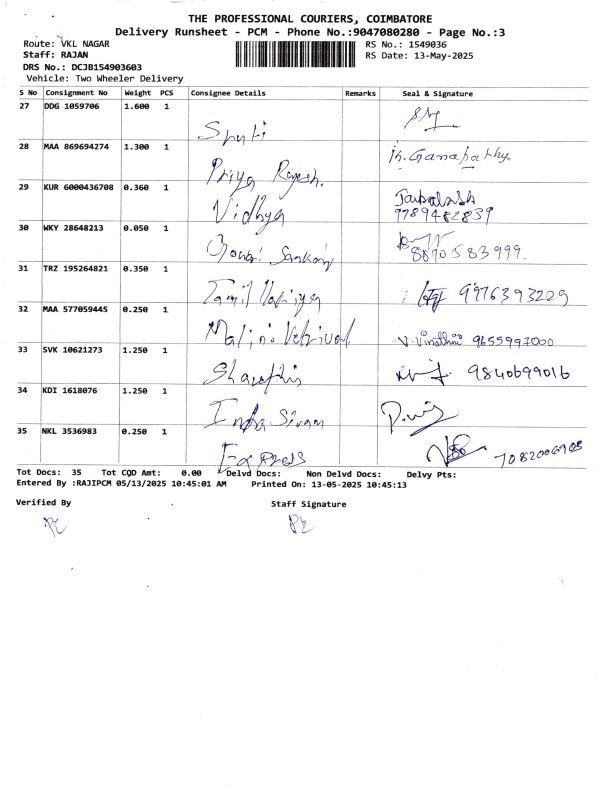 THE PROFESSIONAL COURIERS, COIMBATORE
Delivery Runsheet - PCM - Phone No.:9047080280 - Page No.:3
Route: VKL NAGAR
RS No.: 1549036
Staff: RAJAN
RS Date: 13-May-2025
DRS No.: DCJB154903603
Vehicle: Two Wheeler Delivery
S No Consignment No Weight PCS Consignee Details Remarks Seal & Signature
27 DDG 1059706 1.600 1 Sruti
28 MAA 869694274 1.300 1 Priya Rajesh. K. Ganapathy.
29 KUR 6000436708 0.360 1 Vidhya
9789482839
30 WKY 28648213 0.050 1 Gowri Sankar
8870583999.
31 TRZ 195264821 0.350 1 Tamil 9976393229
32 MAA 577059445 0.250 1 Malini Vetrivel V. 9655997000
33 SVK 10621273 1.250 1 9840699016
34 KDI 1618076 1.250 1 Indra
35 NKL 3536983 0.250 1 Express
Tot Docs: 35 Tot CQD Amt: 0.00 Delvd Docs: Non Delvd Docs: Delvy Pts:
Entered By :RAJIPCM 05/13/2025 10:45:01 AM Printed On: 13-05-2025 10:45:13
Verified By Staff Signature